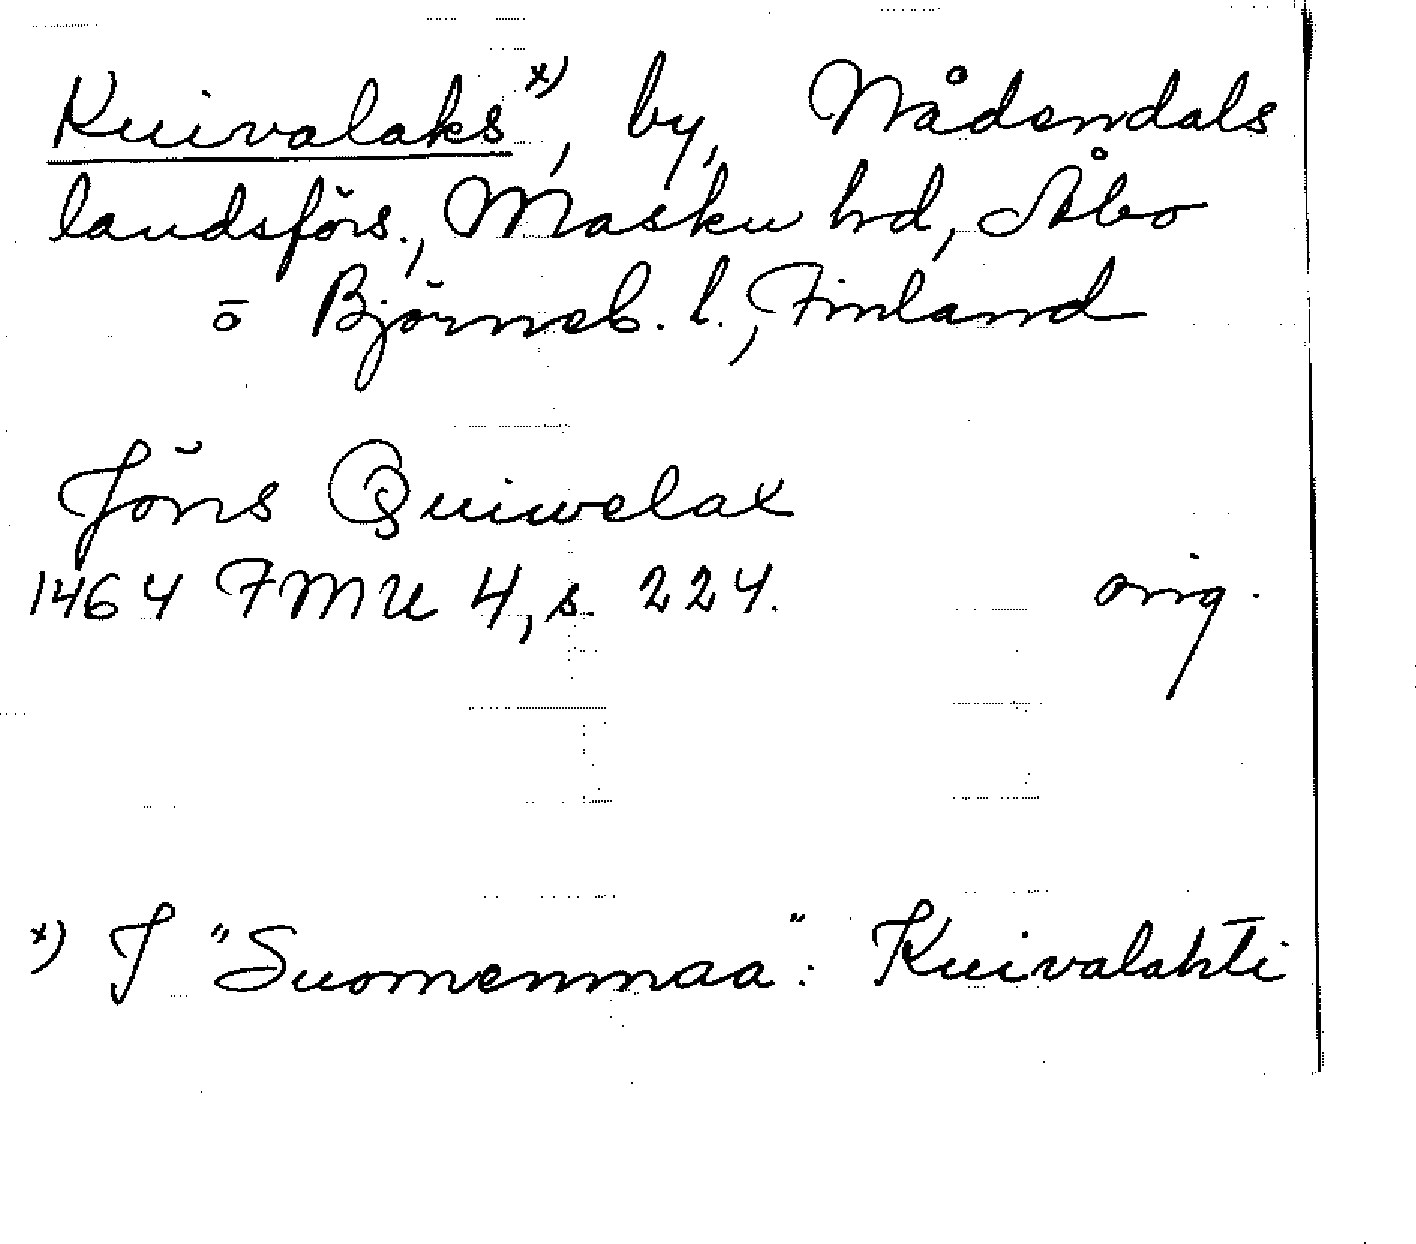 Kuivalaks x), by, Nådendals
landsförs., Masku hd, Åbo
o Björneb. l., Finland
Jöns Quiwelax
1464 FMU 4, s. 224. orig.
x) I "Suomenmaa": Kuivalahti